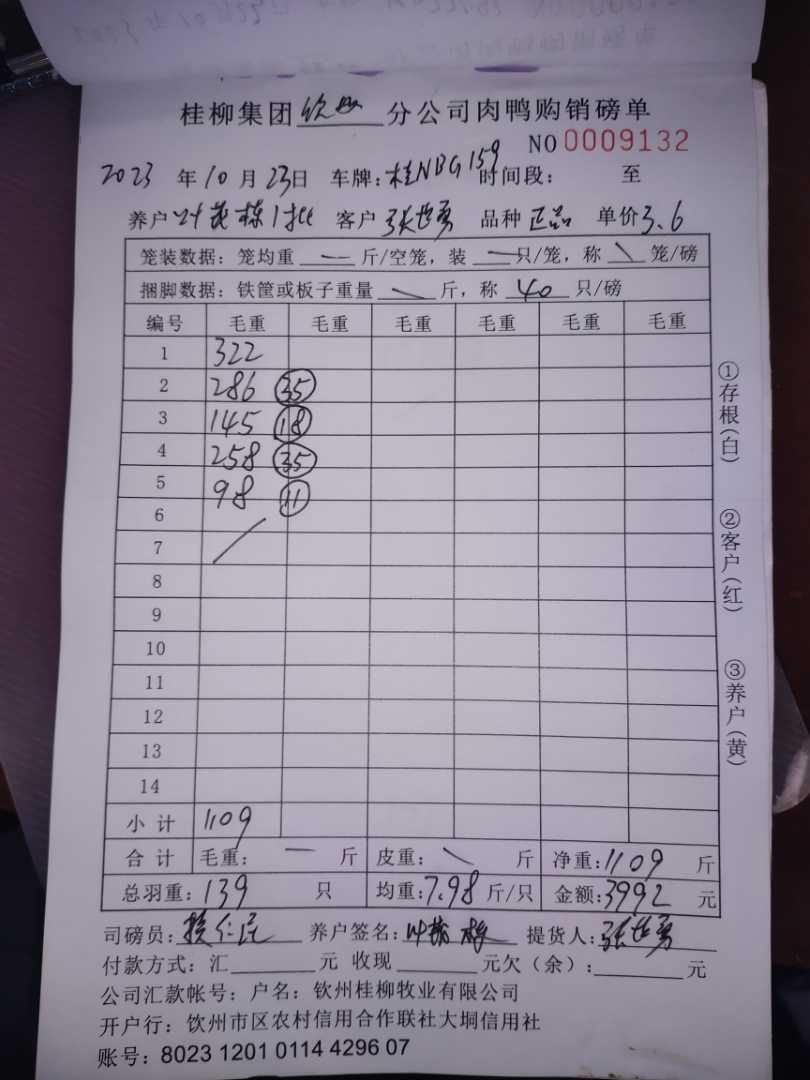 桂柳集团钦州分公司肉鸭购销磅单
NO 0009132
2023 年 10 月 23 日 车牌:桂NBG159 时间段: 至
养户 叶茂栋1批 客户 张世勇 品种 正品 单价 3.6
笼装数据:笼均重 — 斤/空笼,装 — 只/笼,称 \ 笼/磅
捆脚数据:铁筐或板子重量 \ 斤,称 40 只/磅
编号 毛重 毛重 毛重 毛重 毛重 毛重
1 322
2 286 35
3 145 18
4 258 35
5 98 11
6
7
8
9
10
11
12
13
14
小计 1109
合计 毛重: — 斤 皮重: \ 斤 净重:1109 斤
总羽重:139 只 均重:7.98 斤/只 金额:3992 元
司磅员: 养户签名: 提货人:张世勇
付款方式:汇 元 收现 元欠(余): 元
公司汇款帐号:户名:钦州桂柳牧业有限公司
开户行:饮州市区农村信用合作联社大垌信用社
账号:8023 1201 0114 4296 07
①存根(白)
②客户(红)
③养户(黄)